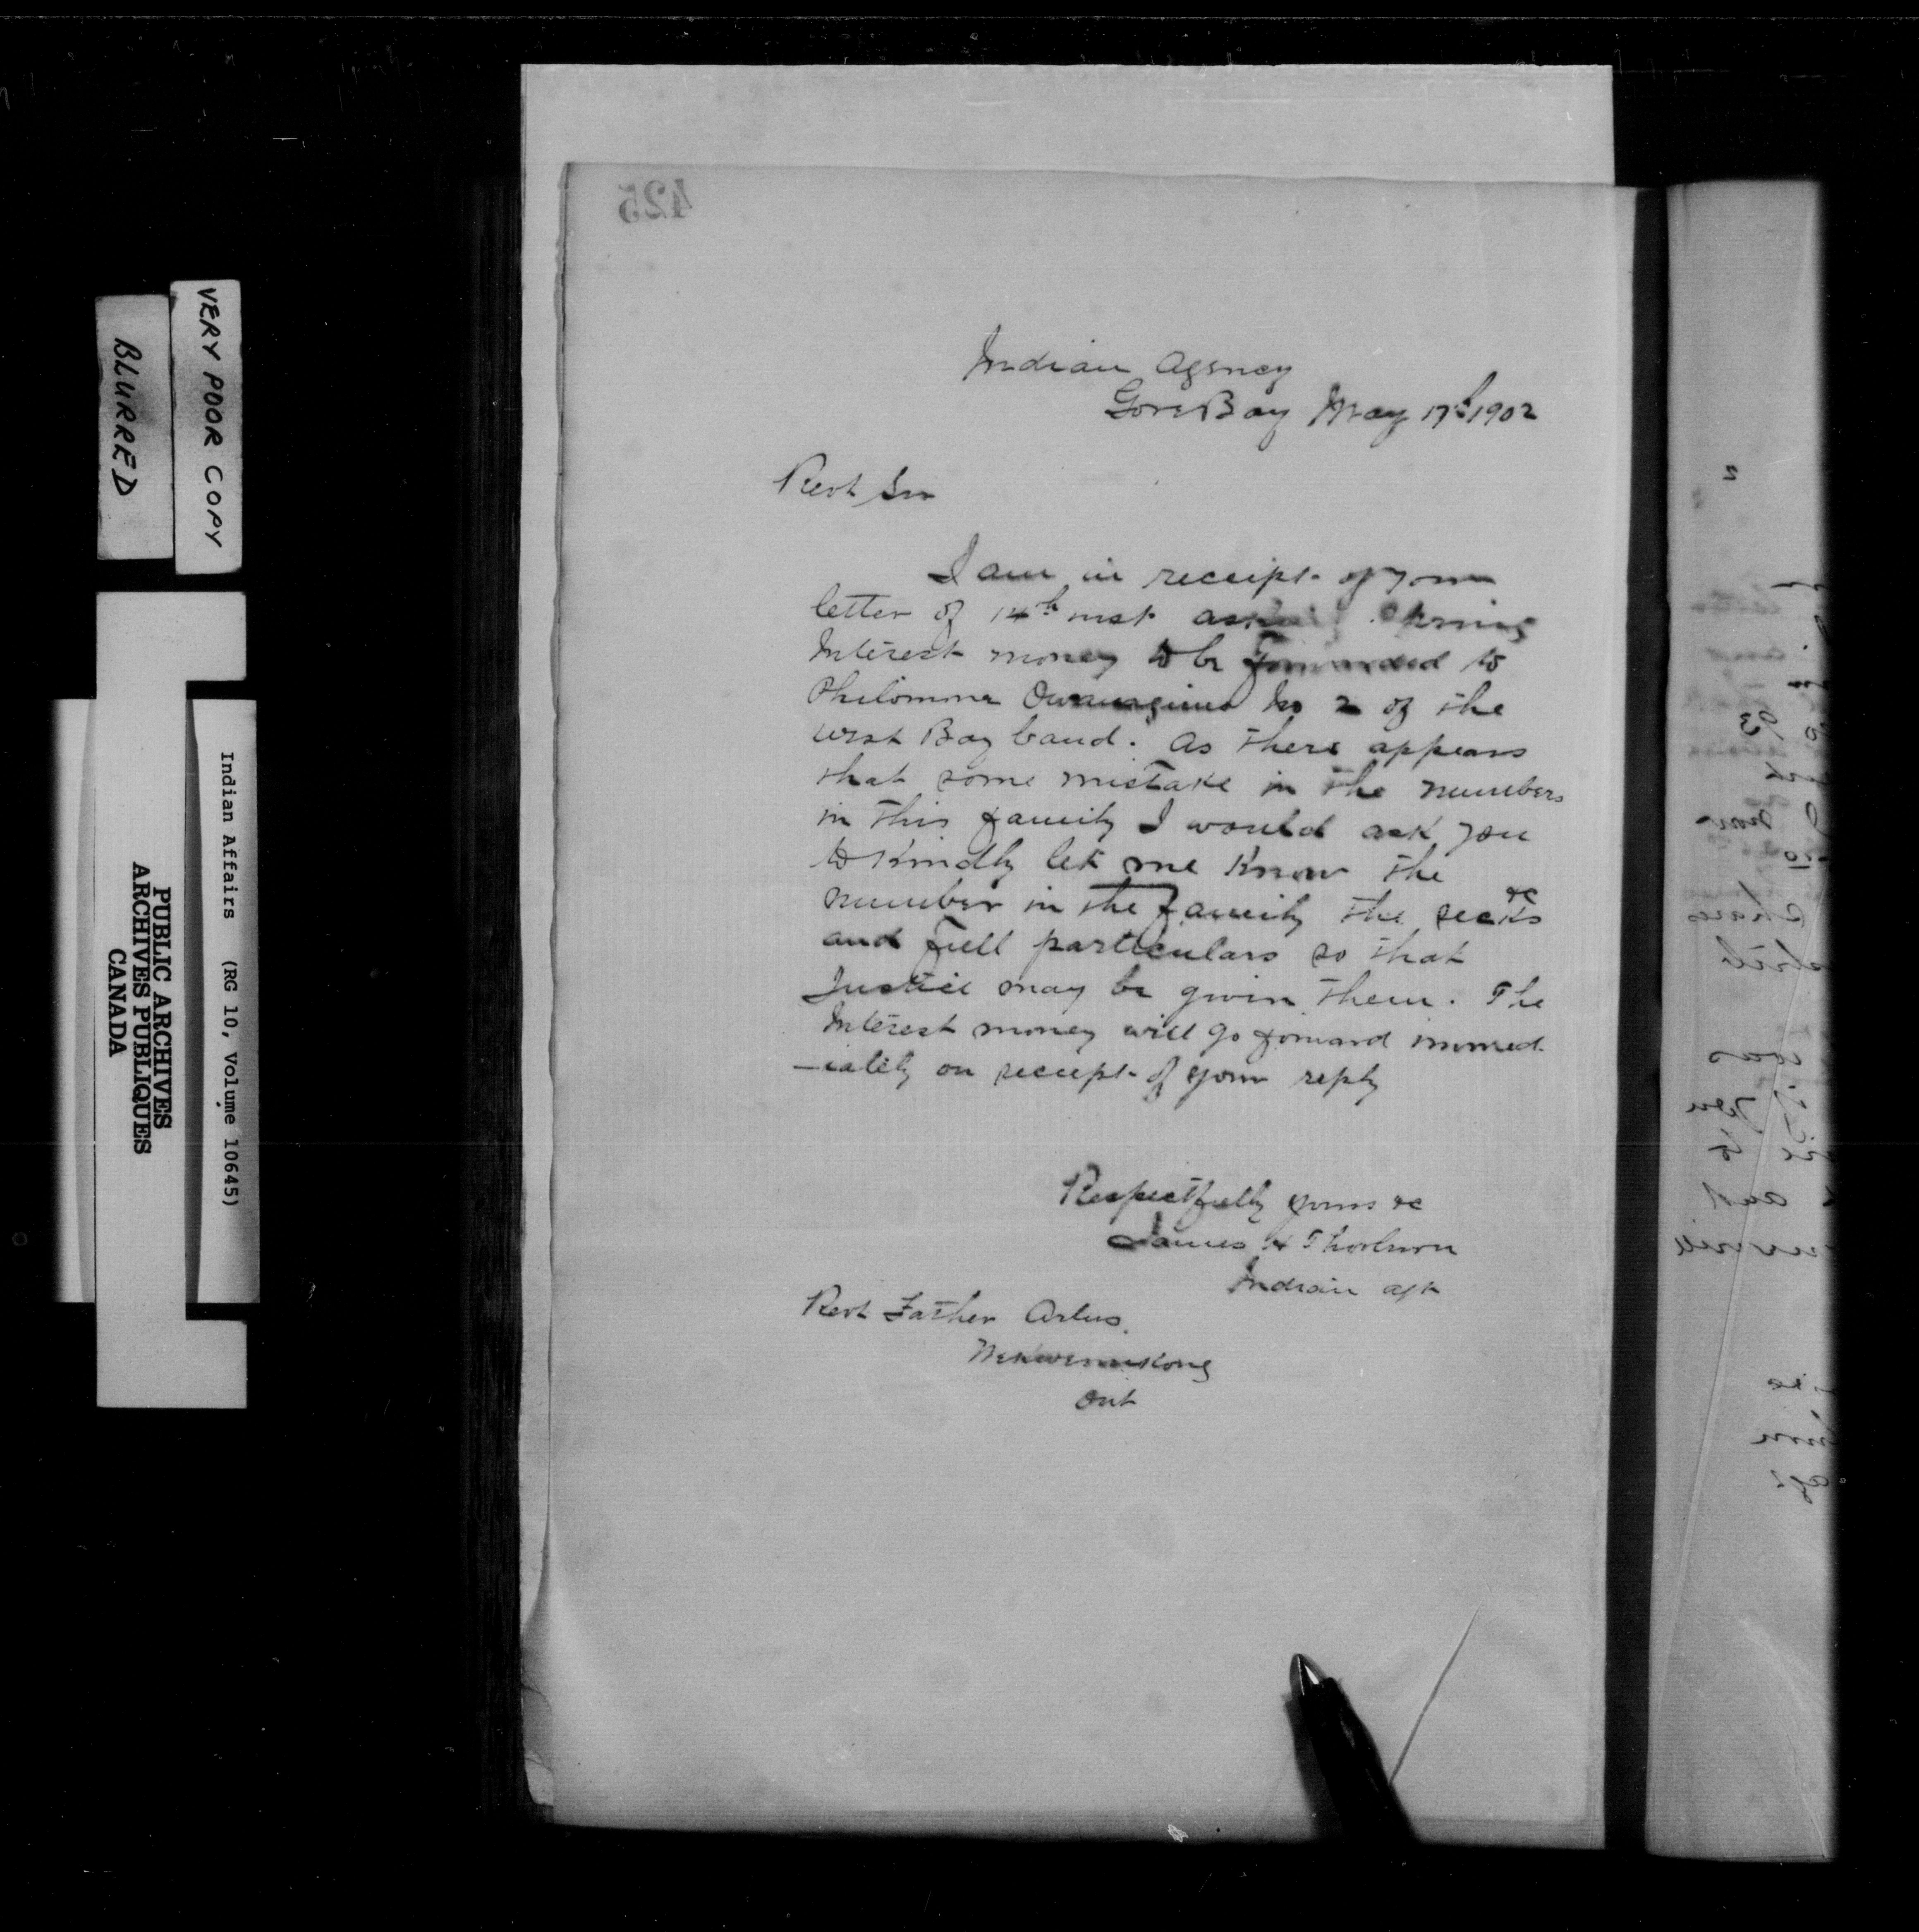 425
Indian Agency
Gore Bay May 17th 1902
Revd Sir
I am in receipt of your
letter of 14th inst asking Spring
Interest money to be forwarded to
Philomme No 2 of the
west Bay band. As there appears
that some mistake in the numbers
in this family I would ask you
to Kindly let me Know the
number in the family the &c
and full particulars so that
Justice may be given them. The
Interest money will go forward immed
-iately on receipt of your reply
Respectfully yours &c
James H Thorburn
Indian agt
Revd Father Artus.
Wekwemikong
Ont
VERY POOR COPY
BLURRED
Indian Affairs (RG 10, Volume 10645)
PUBLIC ARCHIVES
ARCHIVES PUBLIQUES
CANADA